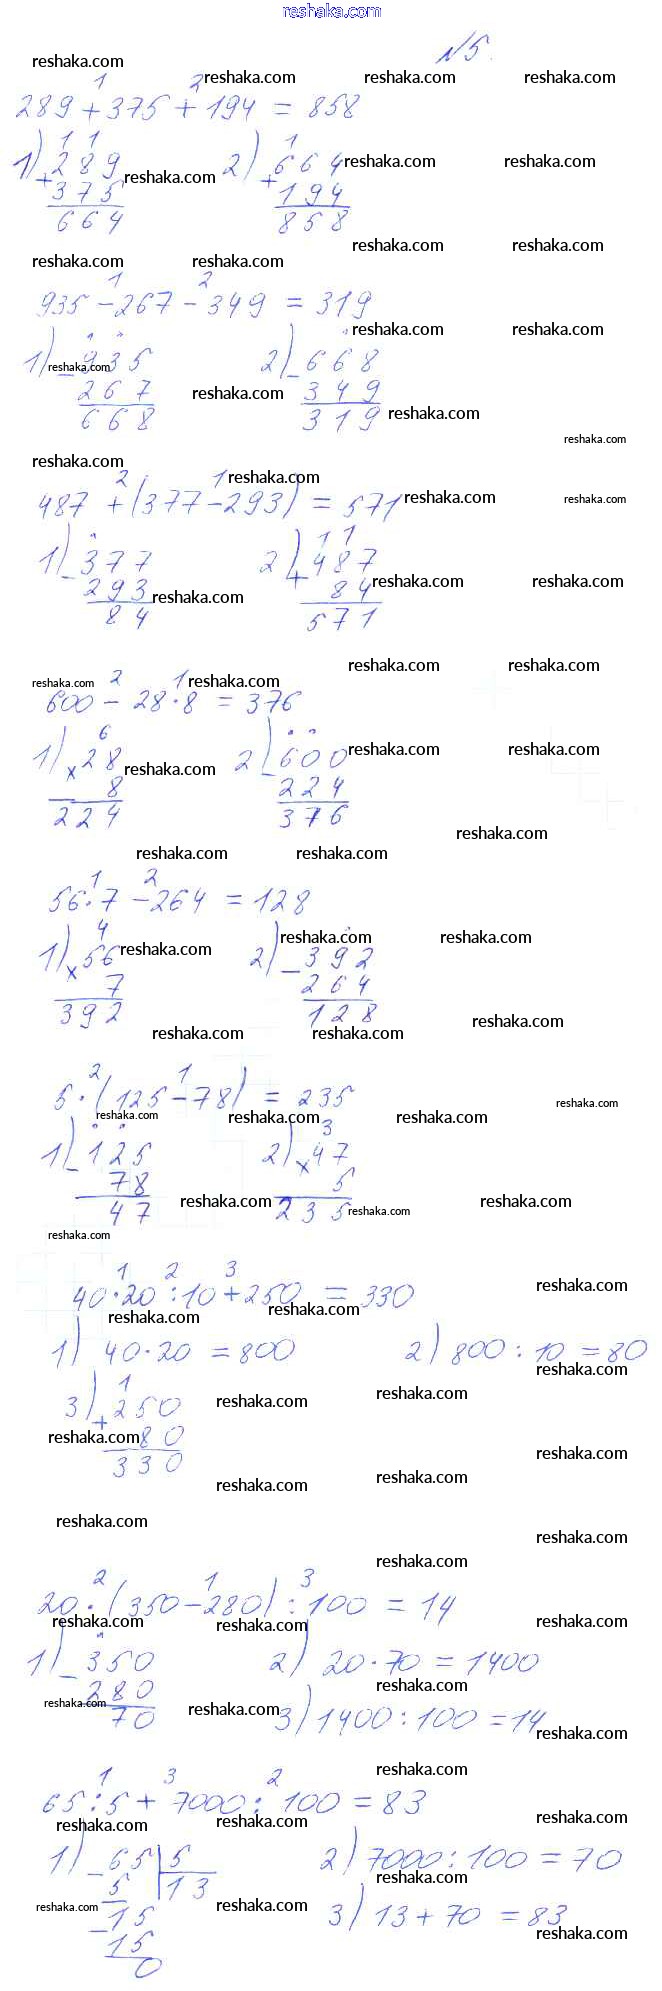 reshaka.com
№5.
289 + 375 + 194 = 858
1) 289 + 375 = 664
2) 664 + 194 = 858
935 - 267 - 349 = 319
1) 935 - 267 = 668
2) 668 - 349 = 319
487 + (377 - 293) = 571
1) 377 - 293 = 84
2) 487 + 84 = 571
600 - 28 · 8 = 376
1) 28 × 8 = 224
2) 600 - 224 = 376
56 · 7 - 264 = 128
1) 56 × 7 = 392
2) 392 - 264 = 128
5 · (125 - 78) = 235
1) 125 - 78 = 47
2) 47 × 5 = 235
40 · 20 : 10 + 250 = 330
1) 40 · 20 = 800
2) 800 : 10 = 80
3) 250 + 80 = 330
20 · (350 - 280) : 100 = 14
1) 350 - 280 = 70
2) 20 · 70 = 1400
3) 1400 : 100 = 14
65 : 5 + 7000 : 100 = 83
1) 65 | 5
5 | 13
15
15
0
2) 7000 : 100 = 70
3) 13 + 70 = 83